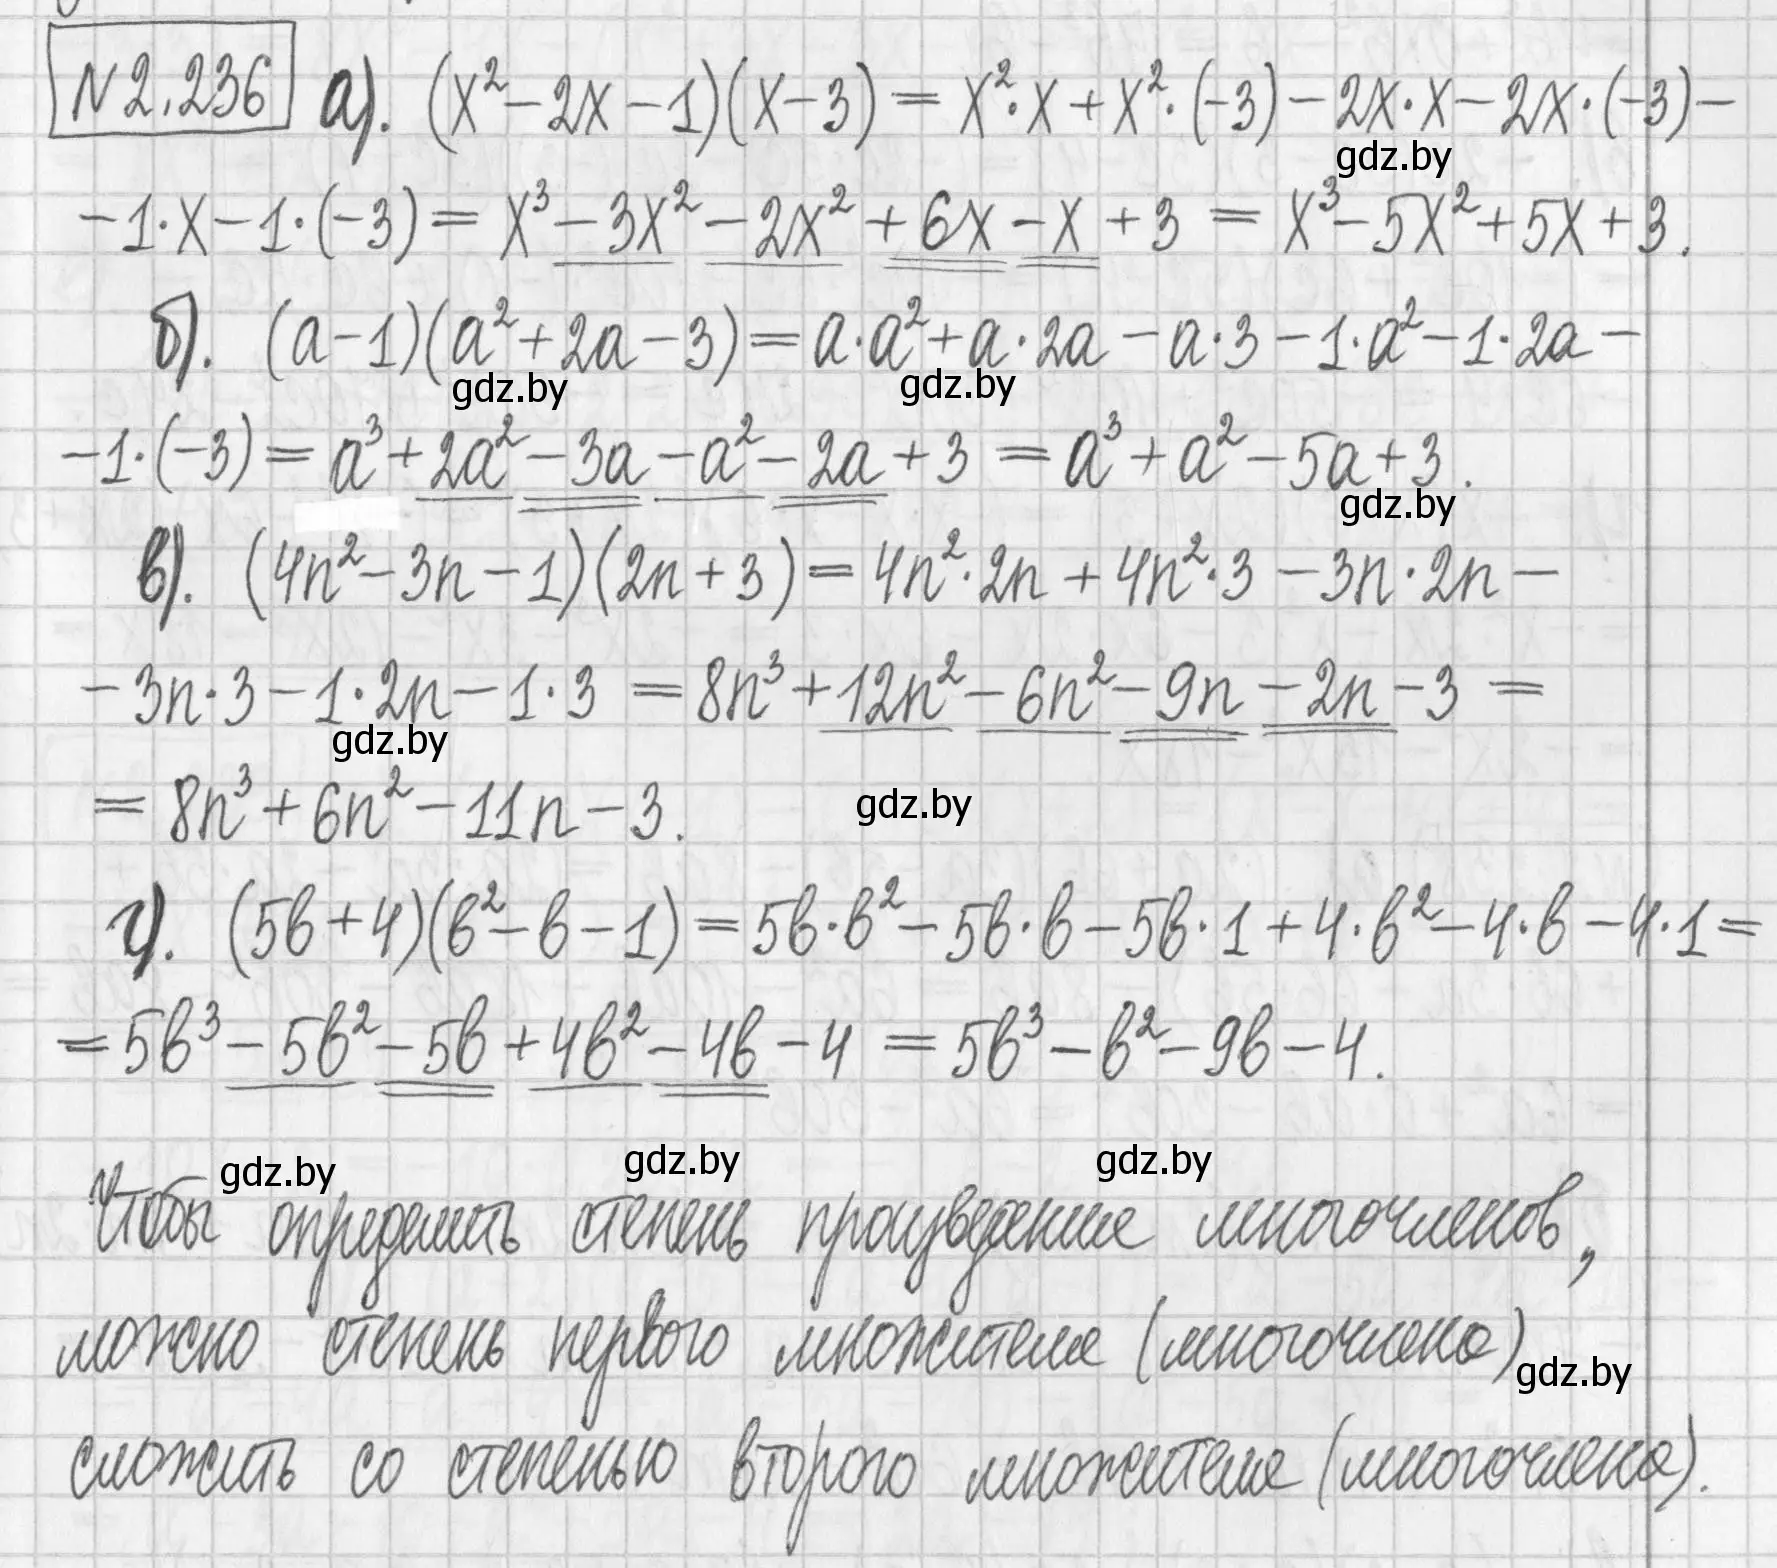 N 2.236 а). (x² - 2x - 1)(x - 3) = x²·x + x²·(-3) - 2x·x - 2x·(-3) -
gdz.by
- 1·x - 1·(-3) = x³ - 3x² - 2x² + 6x - x + 3 = x³ - 5x² + 5x + 3.
б). (a - 1)(a² + 2a - 3) = a·a² + a·2a - a·3 - 1·a² - 1·2a -
gdz.by gdz.by
- 1·(-3) = a³ + 2a² - 3a - a² - 2a + 3 = a³ + a² - 5a + 3.
gdz.by
в). (4n² - 3n - 1)(2n + 3) = 4n²·2n + 4n²·3 - 3n·2n -
- 3n·3 - 1·2n - 1·3 = 8n³ + 12n² - 6n² - 9n - 2n - 3 =
gdz.by
= 8n³ + 6n² - 11n - 3.
gdz.by
г). (5b + 4)(b² - b - 1) = 5b·b² - 5b·b - 5b·1 + 4·b² - 4·b - 4·1 =
= 5b³ - 5b² - 5b + 4b² - 4b - 4 = 5b³ - b² - 9b - 4.
gdz.by gdz.by gdz.by
Чтобы определить степень произведения многочленов,
можно степень первого множителя (многочлена)
gdz.by
сложить со степенью второго множителя (многочлена).